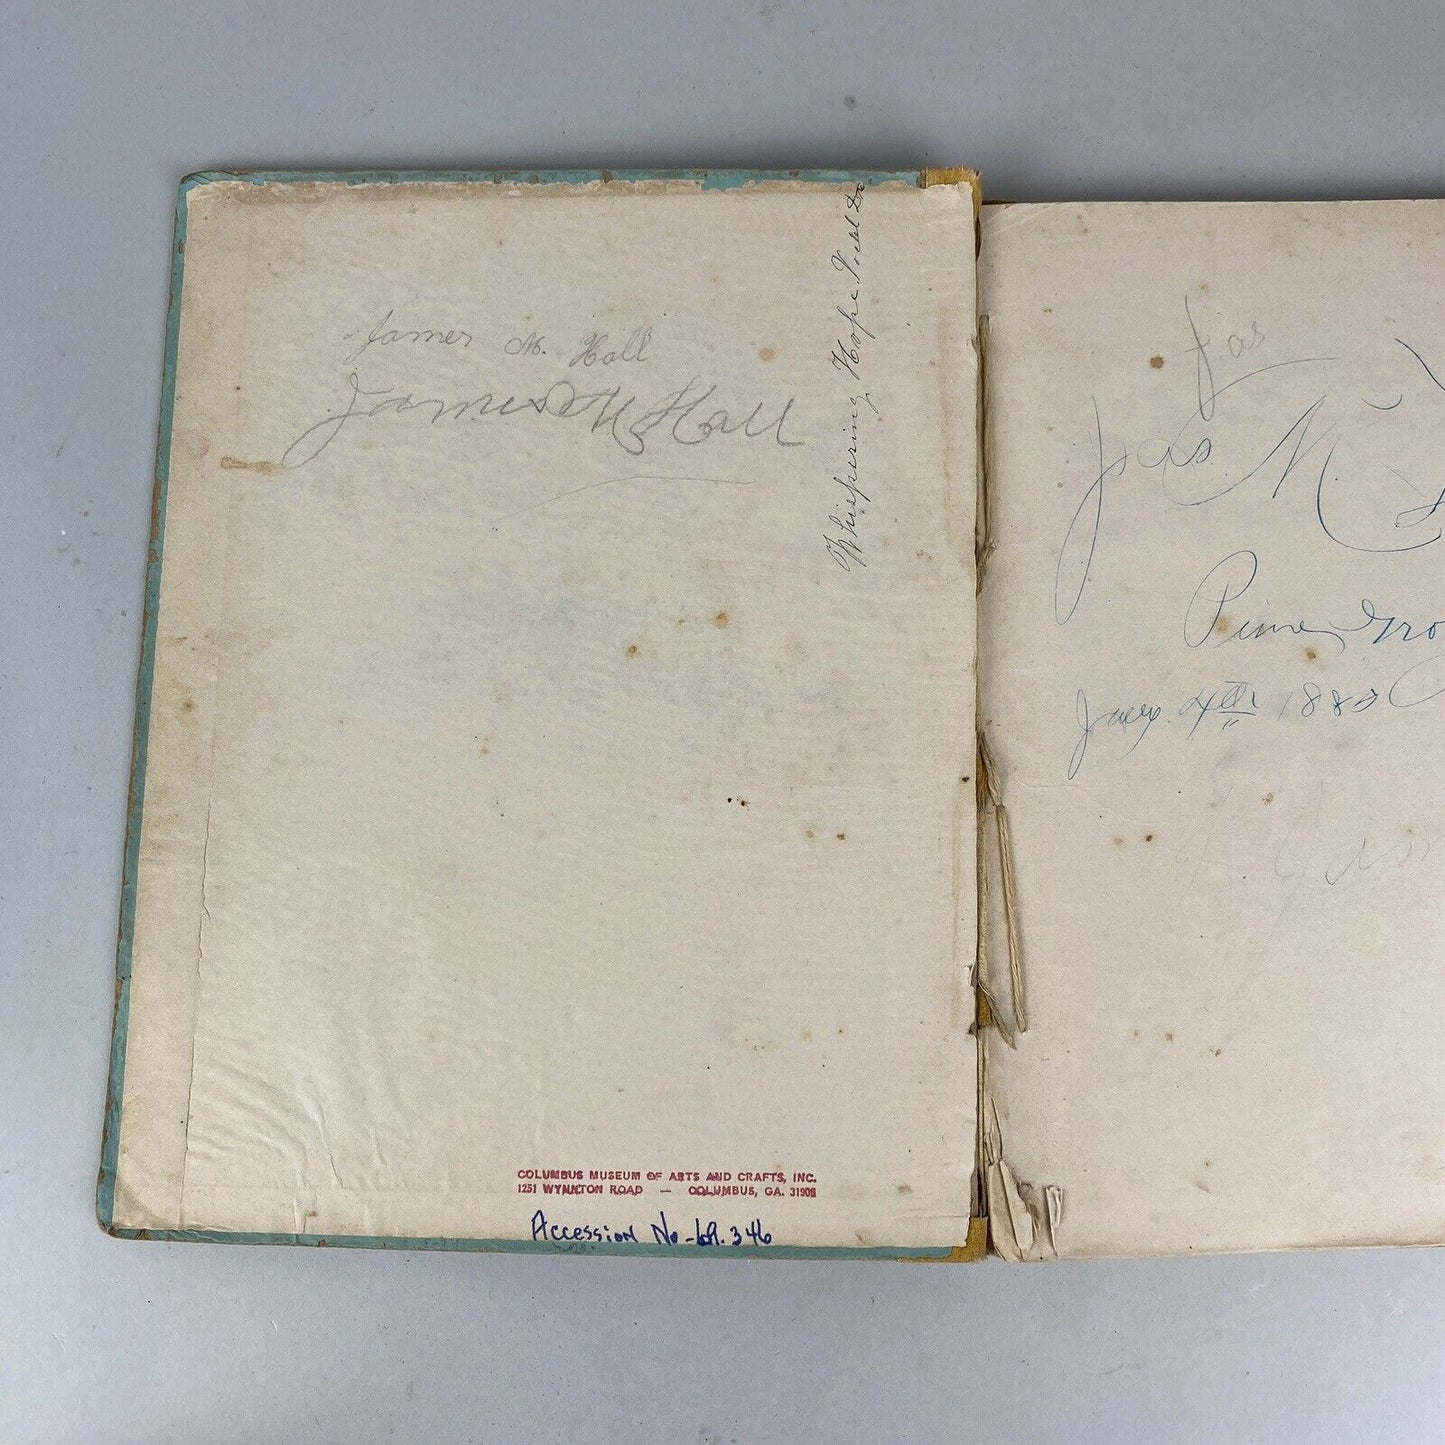 James M. Hall
James M Hall
Whispering Hope
COLUMBUS MUSEUM OF ARTS AND CRAFTS, INC.
1251 WYNNTON ROAD — COLUMBUS, GA. 31906
Accession No-69.346
Jas
Jas. M
Pine Gro
4th 188